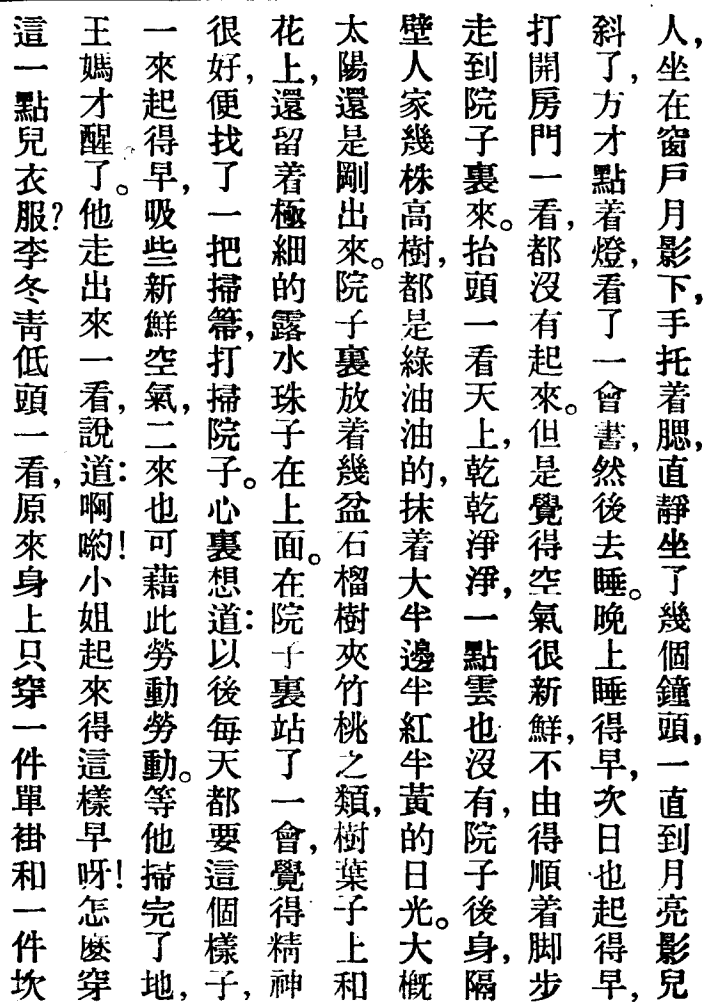 人，坐在窗戶月影下，手托着腮，直靜坐了幾個鐘頭，一直到月亮影兒
斜了，方才點着燈，看了一會書，然後去睡。晚上睡得早，次日也起得早，
打開房門一看，都沒有起來。但是覺得空氣很新鮮，不由得順着脚步
走到院子裏來。抬頭一看天上，乾乾淨淨，一點雲也沒有，院子後身，隔
壁人家幾株高樹，都是綠油油的，抹着大半邊半紅半黃的日光。大概
太陽還是剛出來。院子裏放着幾盆石榴樹夾竹桃之類，樹葉子上和
花上，還留着極細的露水珠子在上面。在院子裏站了一會，覺得精神
很好，便找了一把掃箒，打掃院子。心裏想道：以後每天都要這個樣子，
一來起得早，吸些新鮮空氣，二來也可藉此勞動勞動。等他掃完了地，
王媽才醒了。他走出來一看，說道：啊喲！小姐起來得這樣早呀！怎麽穿
這一點兒衣服？李冬靑低頭一看，原來身上只穿一件單褂和一件坎